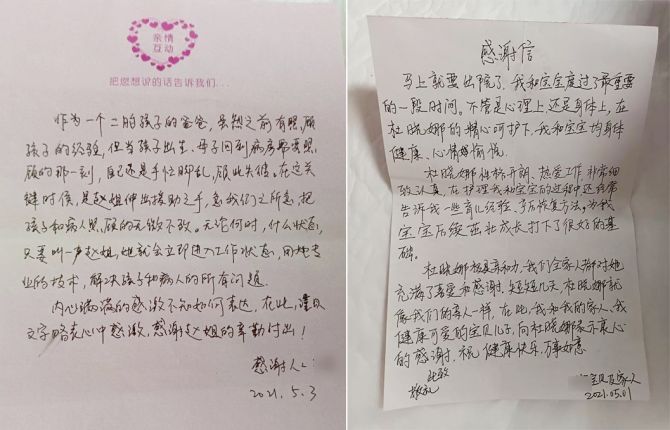 亲情
互动
把您想说的话告诉我们...
作为一个二胎孩子的爸爸,虽然之前有照顾
孩子的经验,但当孩子出生、母子回到病房需要照
顾的那一刻,自己还是手忙脚乱,顾此失彼。在这关
键时候,是赵姐伸出援助之手,急我们之所急,把
孩子和病人照顾的无微不至。无论何时,什么状态,
只要叫一声赵姐,她就会立即进入工作状态,用她专
业的技术,解决孩子和病人的所有问题。
内心满满的感激不知如何表达,在此,谨以
文字略表心中感激,感谢赵姐的辛勤付出!
感谢人:
2021.5.3
感谢信
马上就要出院了,我和宝宝度过了最重要
的一段时间。不管是心理上还是身体上,在
杜晓娜的精心呵护下,我和宝宝均身体
健康、心情愉悦。
杜晓娜性格开朗、热爱工作,非常细
致认真,在护理我和宝宝的过程中还经常
告诉我一些育儿经验、产后恢复方法,为我
宝宝后续茁壮成长打下了很好的基
础。
杜晓娜极具亲和力,我们全家人都对她
充满了喜爱和感谢,短短几天杜晓娜就
像我们的家人一样。在此,我和我的家人、我
健康可爱的宝贝儿子,向杜晓娜表示衷心
的感谢。祝 健康快乐,万事如意
此致
敬礼
宝贝及家人
2021.05.01